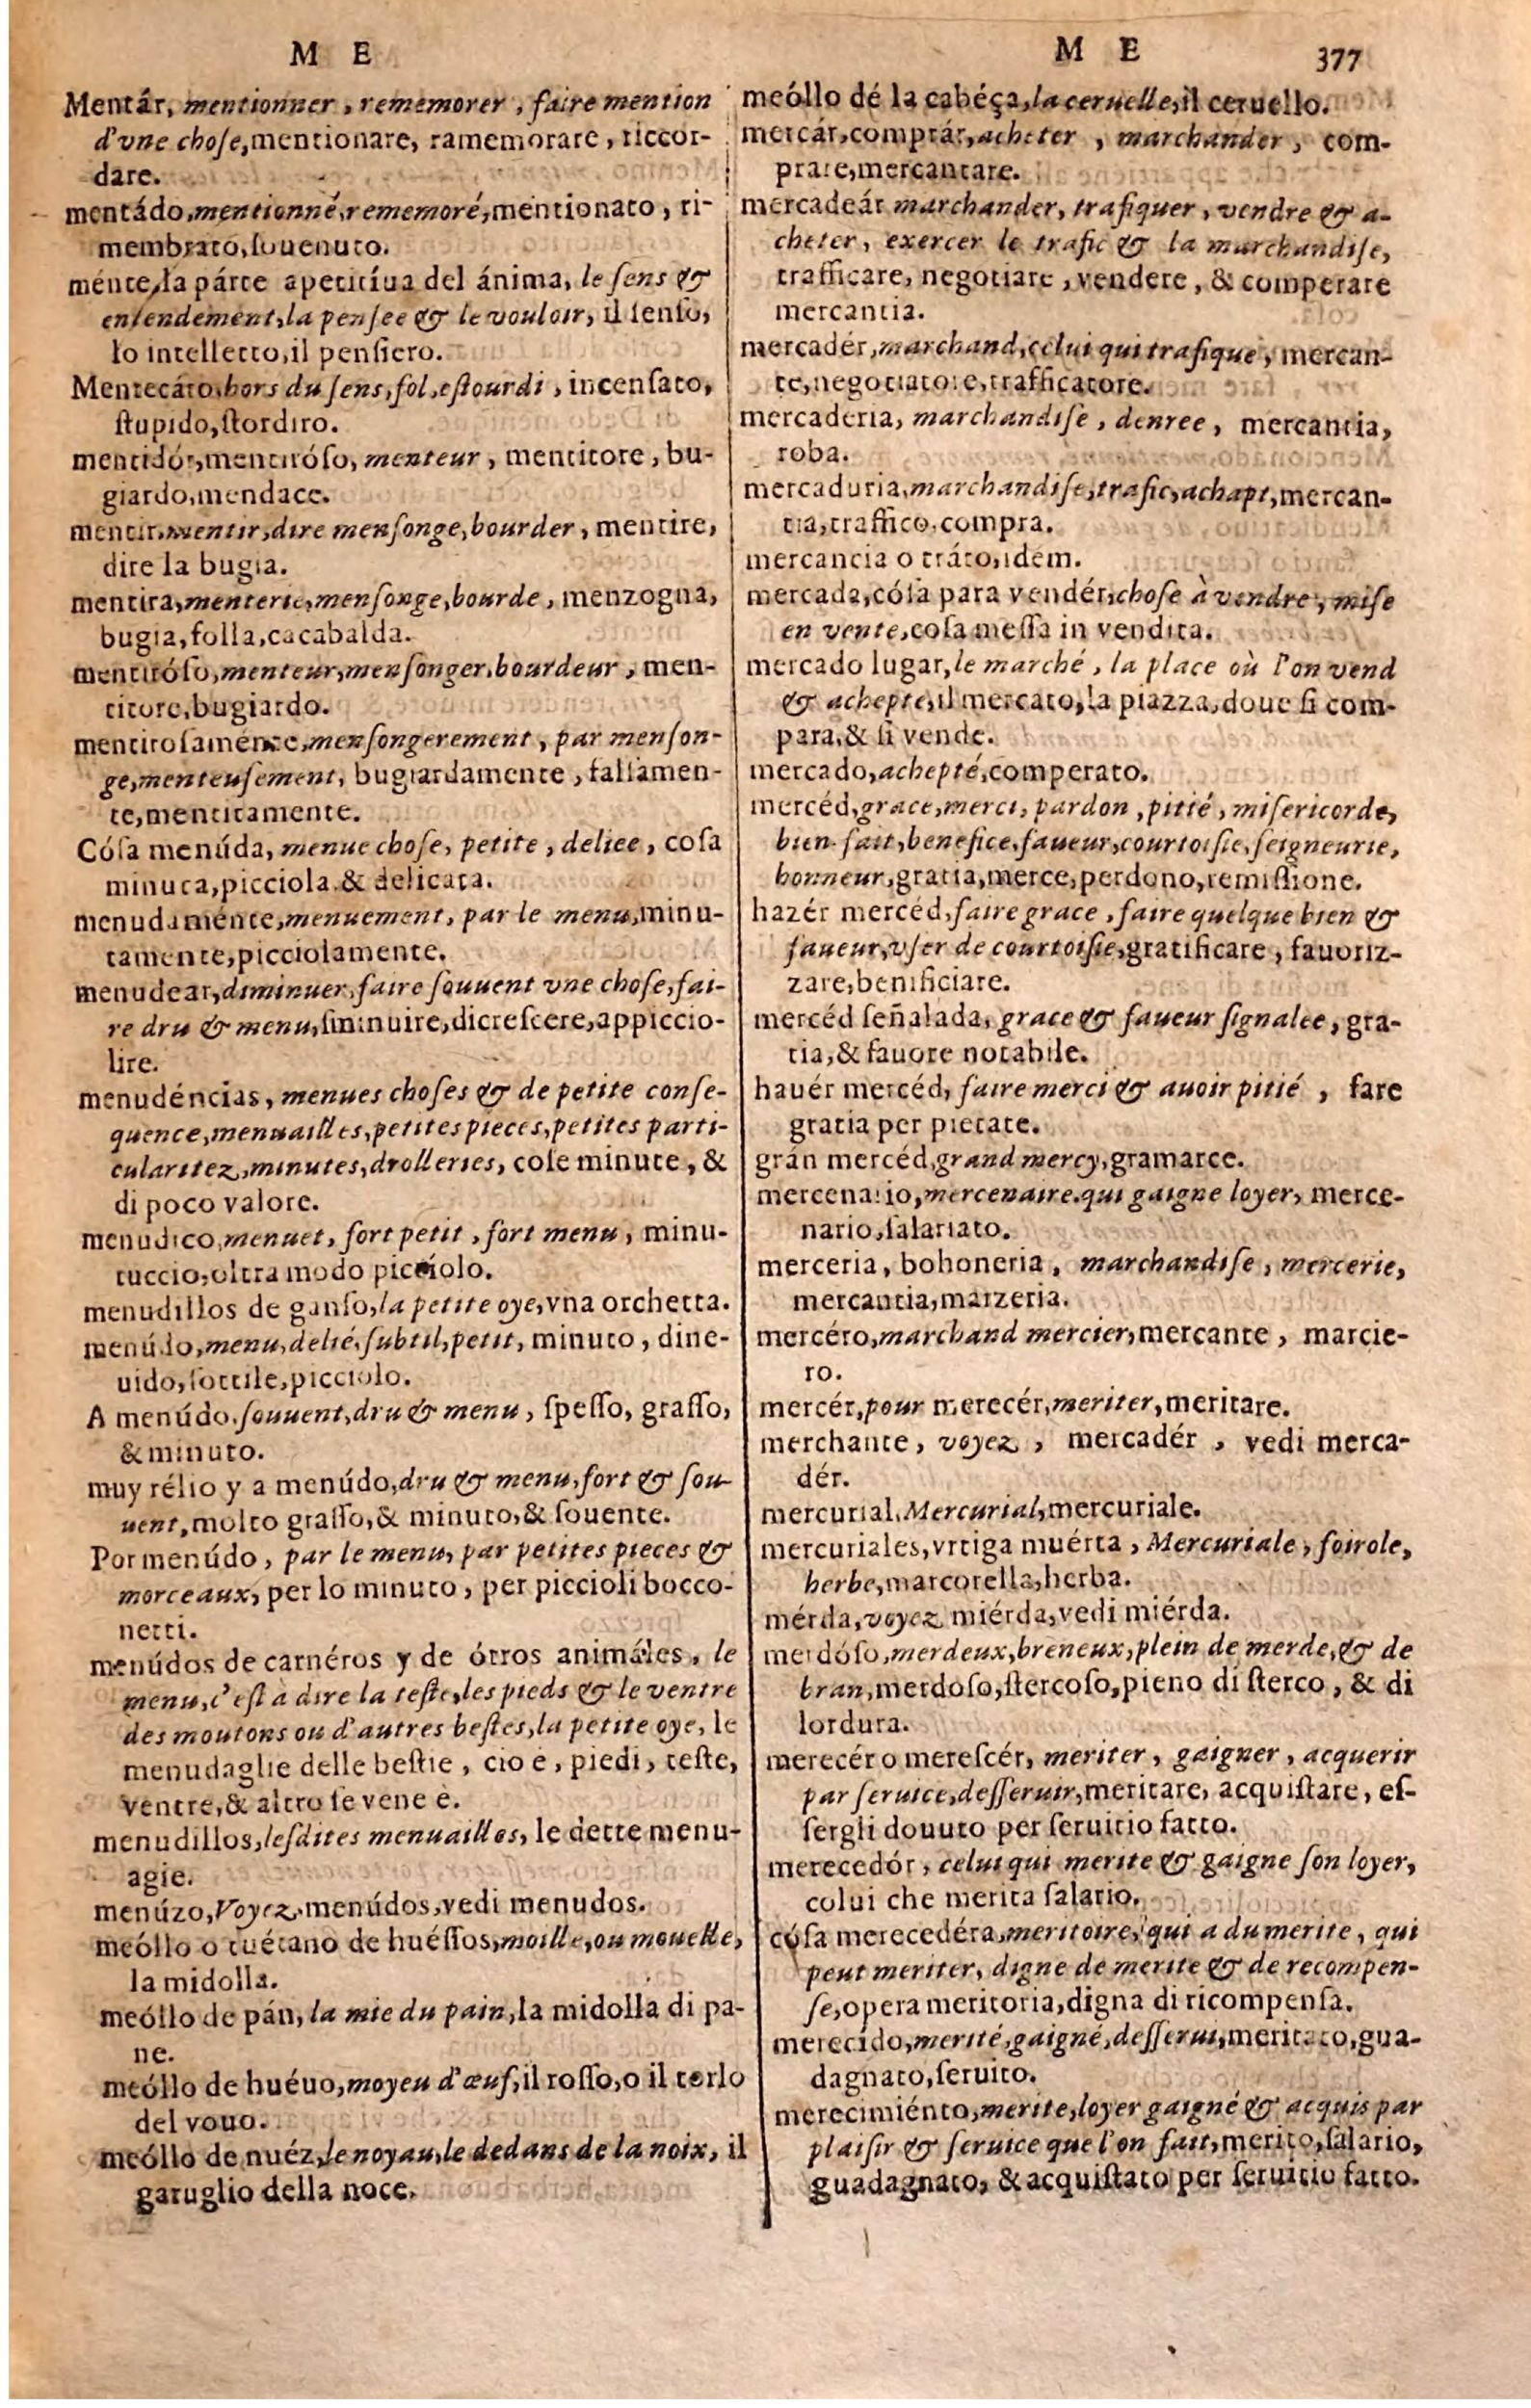 M E
Mentár, mentionner, rememorer, faire mention
d'vne chose, mentionare, ramemorare, riccor-
dare.
mentádo, mentionné, rememoré, mentionato, ri-
membrato, souenuto.
ménte, la párte apetitíua del ánima, le sens &
entendement, la pensee & le vouloir, il senso,
lo intelletto, il pensiero.
Mentecáto, hors du sens, fol, estourdi, incensato,
stupido, stordiro.
mentidór, mentiróso, menteur, mentitore, bu-
giardo, mendace.
mentir, mentir, dire mensonge, bourder, mentire,
dire la bugia.
mentira, menterie, mensonge, bourde, menzogna,
bugia, folla, cacabalda.
mentiróso, menteur, mensonger, bourdeur, men-
titore, bugiardo.
mentirosaménte, mensongerement, par menson-
ge, menteusement, bugiardamente, falsamen-
te, mentitamente.
Cósa menúda, menue chose, petite, deliee, cosa
minuta, picciola & delicata.
menudaménte, menuement, par le menu, minu-
tamente, picciolamente.
menudear, diminuer, faire souuent vne chose, fai-
re dru & menu, sminuire, dicrescere, appiccio-
lire.
menudéncias, menues choses & de petite conse-
quence, menuailles, petites pieces, petites parti-
cularitez, minutes, drolleries, cose minute, &
di poco valore.
menudico, menuet, fort petit, fort menu, minu-
tuccio, oltra modo picciolo.
menudillos de ganso, la petite oye, vna orchetta.
menúdo, menu, delié, subtil, petit, minuto, dine-
uido, sottile, picciolo.
A menúdo, souuent, dru & menu, spesso, grasso,
& minuto.
muy rézio y a menúdo, dru & menu, fort & sou-
uent, molto grasso, & minuto, & souente.
Por menúdo, par le menu, par petites pieces &
morceaux, per lo minuto, per piccioli bocco-
netti.
menúdos de carnéros y de ótros animáles, le
menu, c'est à dire la teste, les pieds & le ventre
des moutons ou d'autres bestes, la petite oye, le
menudaglie delle bestie, cio è, piedi, teste,
ventre, & altro se vene è.
menudillos, lesdites menuailles, le dette menu-
agie.
menúzo, Voyez menúdos, vedi menudos.
meóllo o tuétano de huéssos, moille, ou mouelle,
la midolla.
meóllo de pán, la mie du pain, la midolla di pa-
ne.
meóllo de huéuo, moyeu d'œuf, il rosso, o il torlo
del vouo.
meóllo de nuéz, le noyau, le dedans de la noix, il
garuglio della noce.
M E 377
meóllo dé la cabéça, la ceruelle, il ceruello.
mercár, comprár, acheter, marchander, com-
prare, mercantare.
mercadeár marchander, trafiquer, vendre & a-
cheter, exercer le trafic & la marchandise,
trafficare, negotiare, vendere, & comperare
mercantia.
mercadér, marchand, celui qui trafique, mercan-
te, negotiatore, trafficatore.
mercaderia, marchandise, denree, mercantia,
roba.
mercaduria, marchandise, trafic, achapt, mercan-
tia, traffico, compra.
mercancia o tráto, idem.
mercada, cósa para vendér, chose à vendre, mise
en vente, cosa messa in vendita.
mercado lugar, le marché, la place où l'on vend
& achepte, il mercato, la piazza, doue si com-
para, & si vende.
mercado, achepté, comperato.
mercéd, grace, merci, pardon, pitié, misericorde,
bien-fait, benefice, faueur, courtoisie, seigneurie,
honneur, gratia, merce, perdono, remissione.
hazér mercéd, faire grace, faire quelque bien &
faueur, vser de courtoisie, gratificare, fauoriz-
zare, benificiare.
mercéd señalada, grace & faueur signalee, gra-
tia, & fauore notabile.
hauér mercéd, faire merci & auoir pitié, fare
gratia per pietate.
grán mercéd, grand mercy, gramarce.
mercenario, mercenaire, qui gaigne loyer, merce-
nario, salariato.
merceria, bohoneria, marchandise, mercerie,
mercantia, marzeria.
mercéro, marchand mercier, mercante, marcie-
ro.
mercér, pour merecér, meriter, meritare.
merchante, voyez, mercadér, vedi merca-
dér.
mercurial, Mercurial, mercuriale.
mercuriales, vrtiga muérta, Mercuriale, foirole,
herbe, marcorella, herba.
mérda, voyez miérda, vedi miérda.
merdóso, merdeux, breneux, plein de merde, & de
bran, merdoso, stercoso, pieno di sterco, & di
lordura.
merecér o merescér, meriter, gaigner, acquerir
par seruice, desseruir, meritare, acquistare, es-
sergli douuto per seruitio fatto.
merecedór, celui qui merite & gaigne son loyer,
colui che merita salario.
cósa merecedéra, meritoire, qui a du merite, qui
peut meriter, digne de merite & de recompen-
se, opera meritoria, digna di ricompensa.
merecído, merité, gaigné, desserui, meritato, gua-
dagnato, seruito.
merecimiénto, merite, loyer gaigné & acquis par
plaisir & seruice que l'on fait, merito, salario,
guadagnato, & acquistato per seruitio fatto.